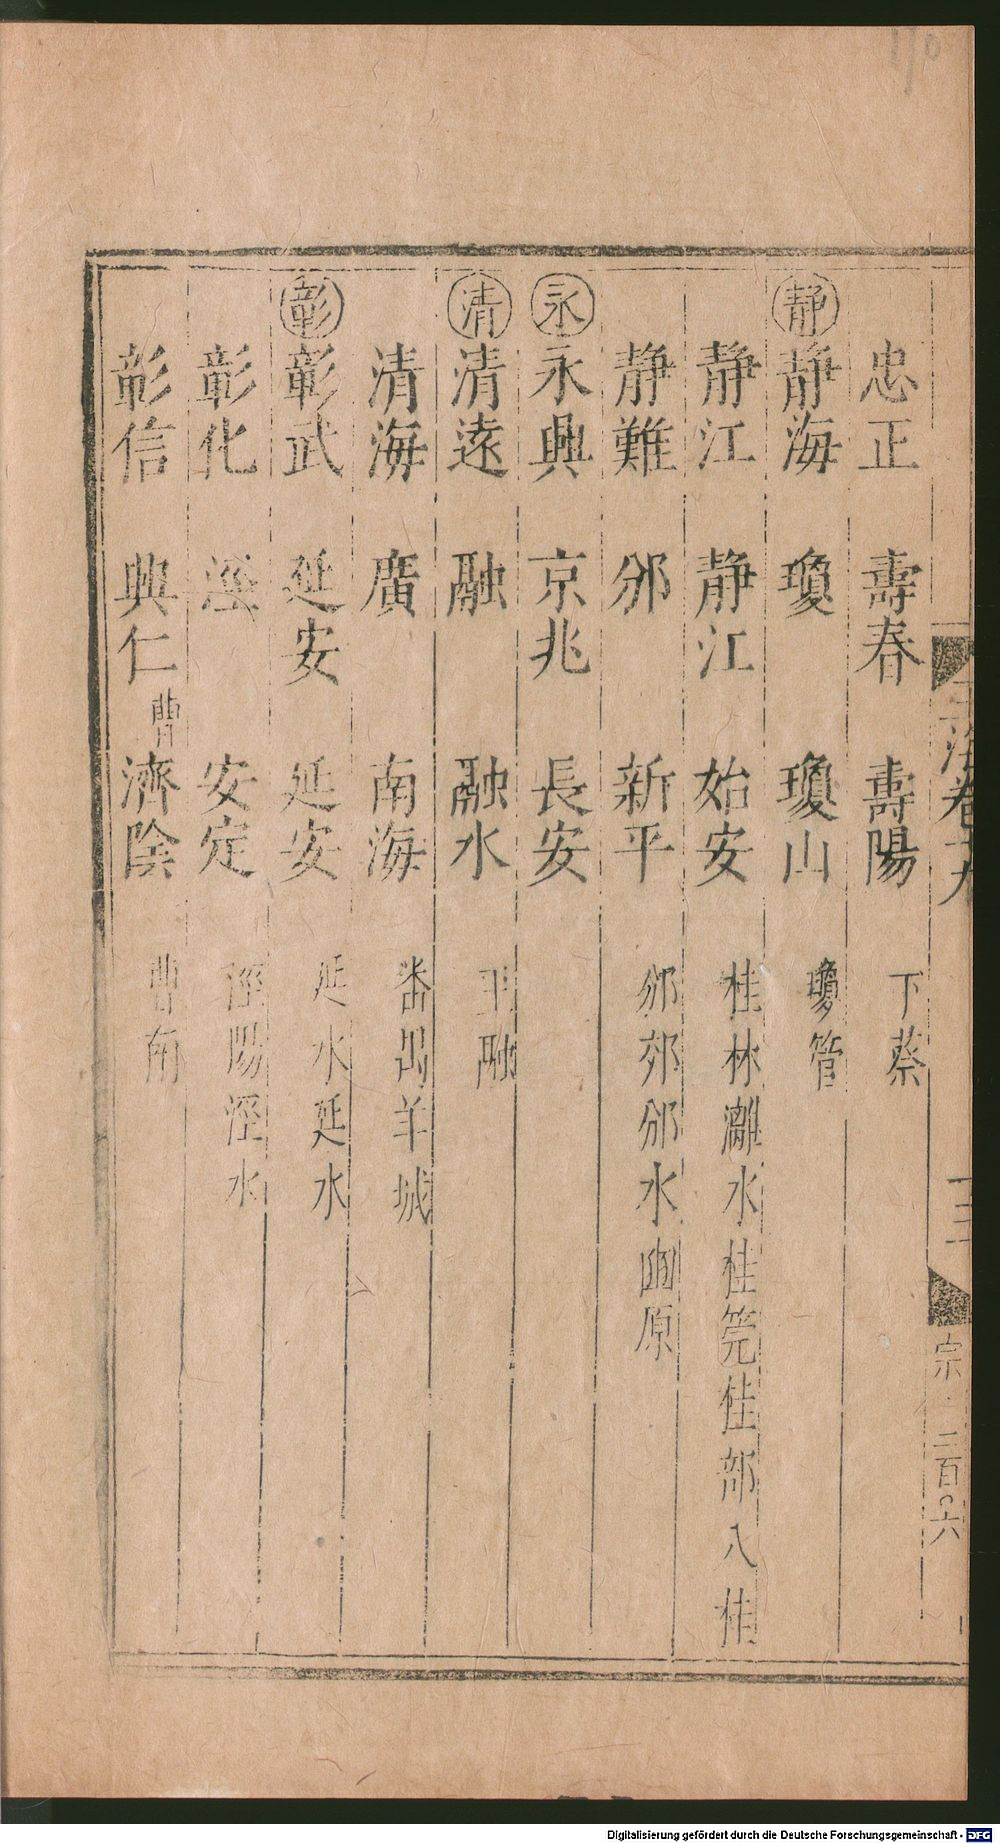 忠正 壽春 壽陽 下蔡
靜 靜海 瓊 瓊山 瓊管
靜江 靜江 始安 桂林灕水桂筦桂部八桂
靜難 邠 新平 邠郊邠水豳原
永 永興 京兆 長安
清 清遠 融 融水 玉融
清海 廣 南海 番禺羊城
彰 彰武 延安 延安 延水延水
彰化 涇 安定 涇陽涇水
彰信 興仁 曹 濟陰 曹南
卷十九
宗 二百〇六
170
Digitalisierung gefördert durch die Deutsche Forschungsgemeinschaft - DFG